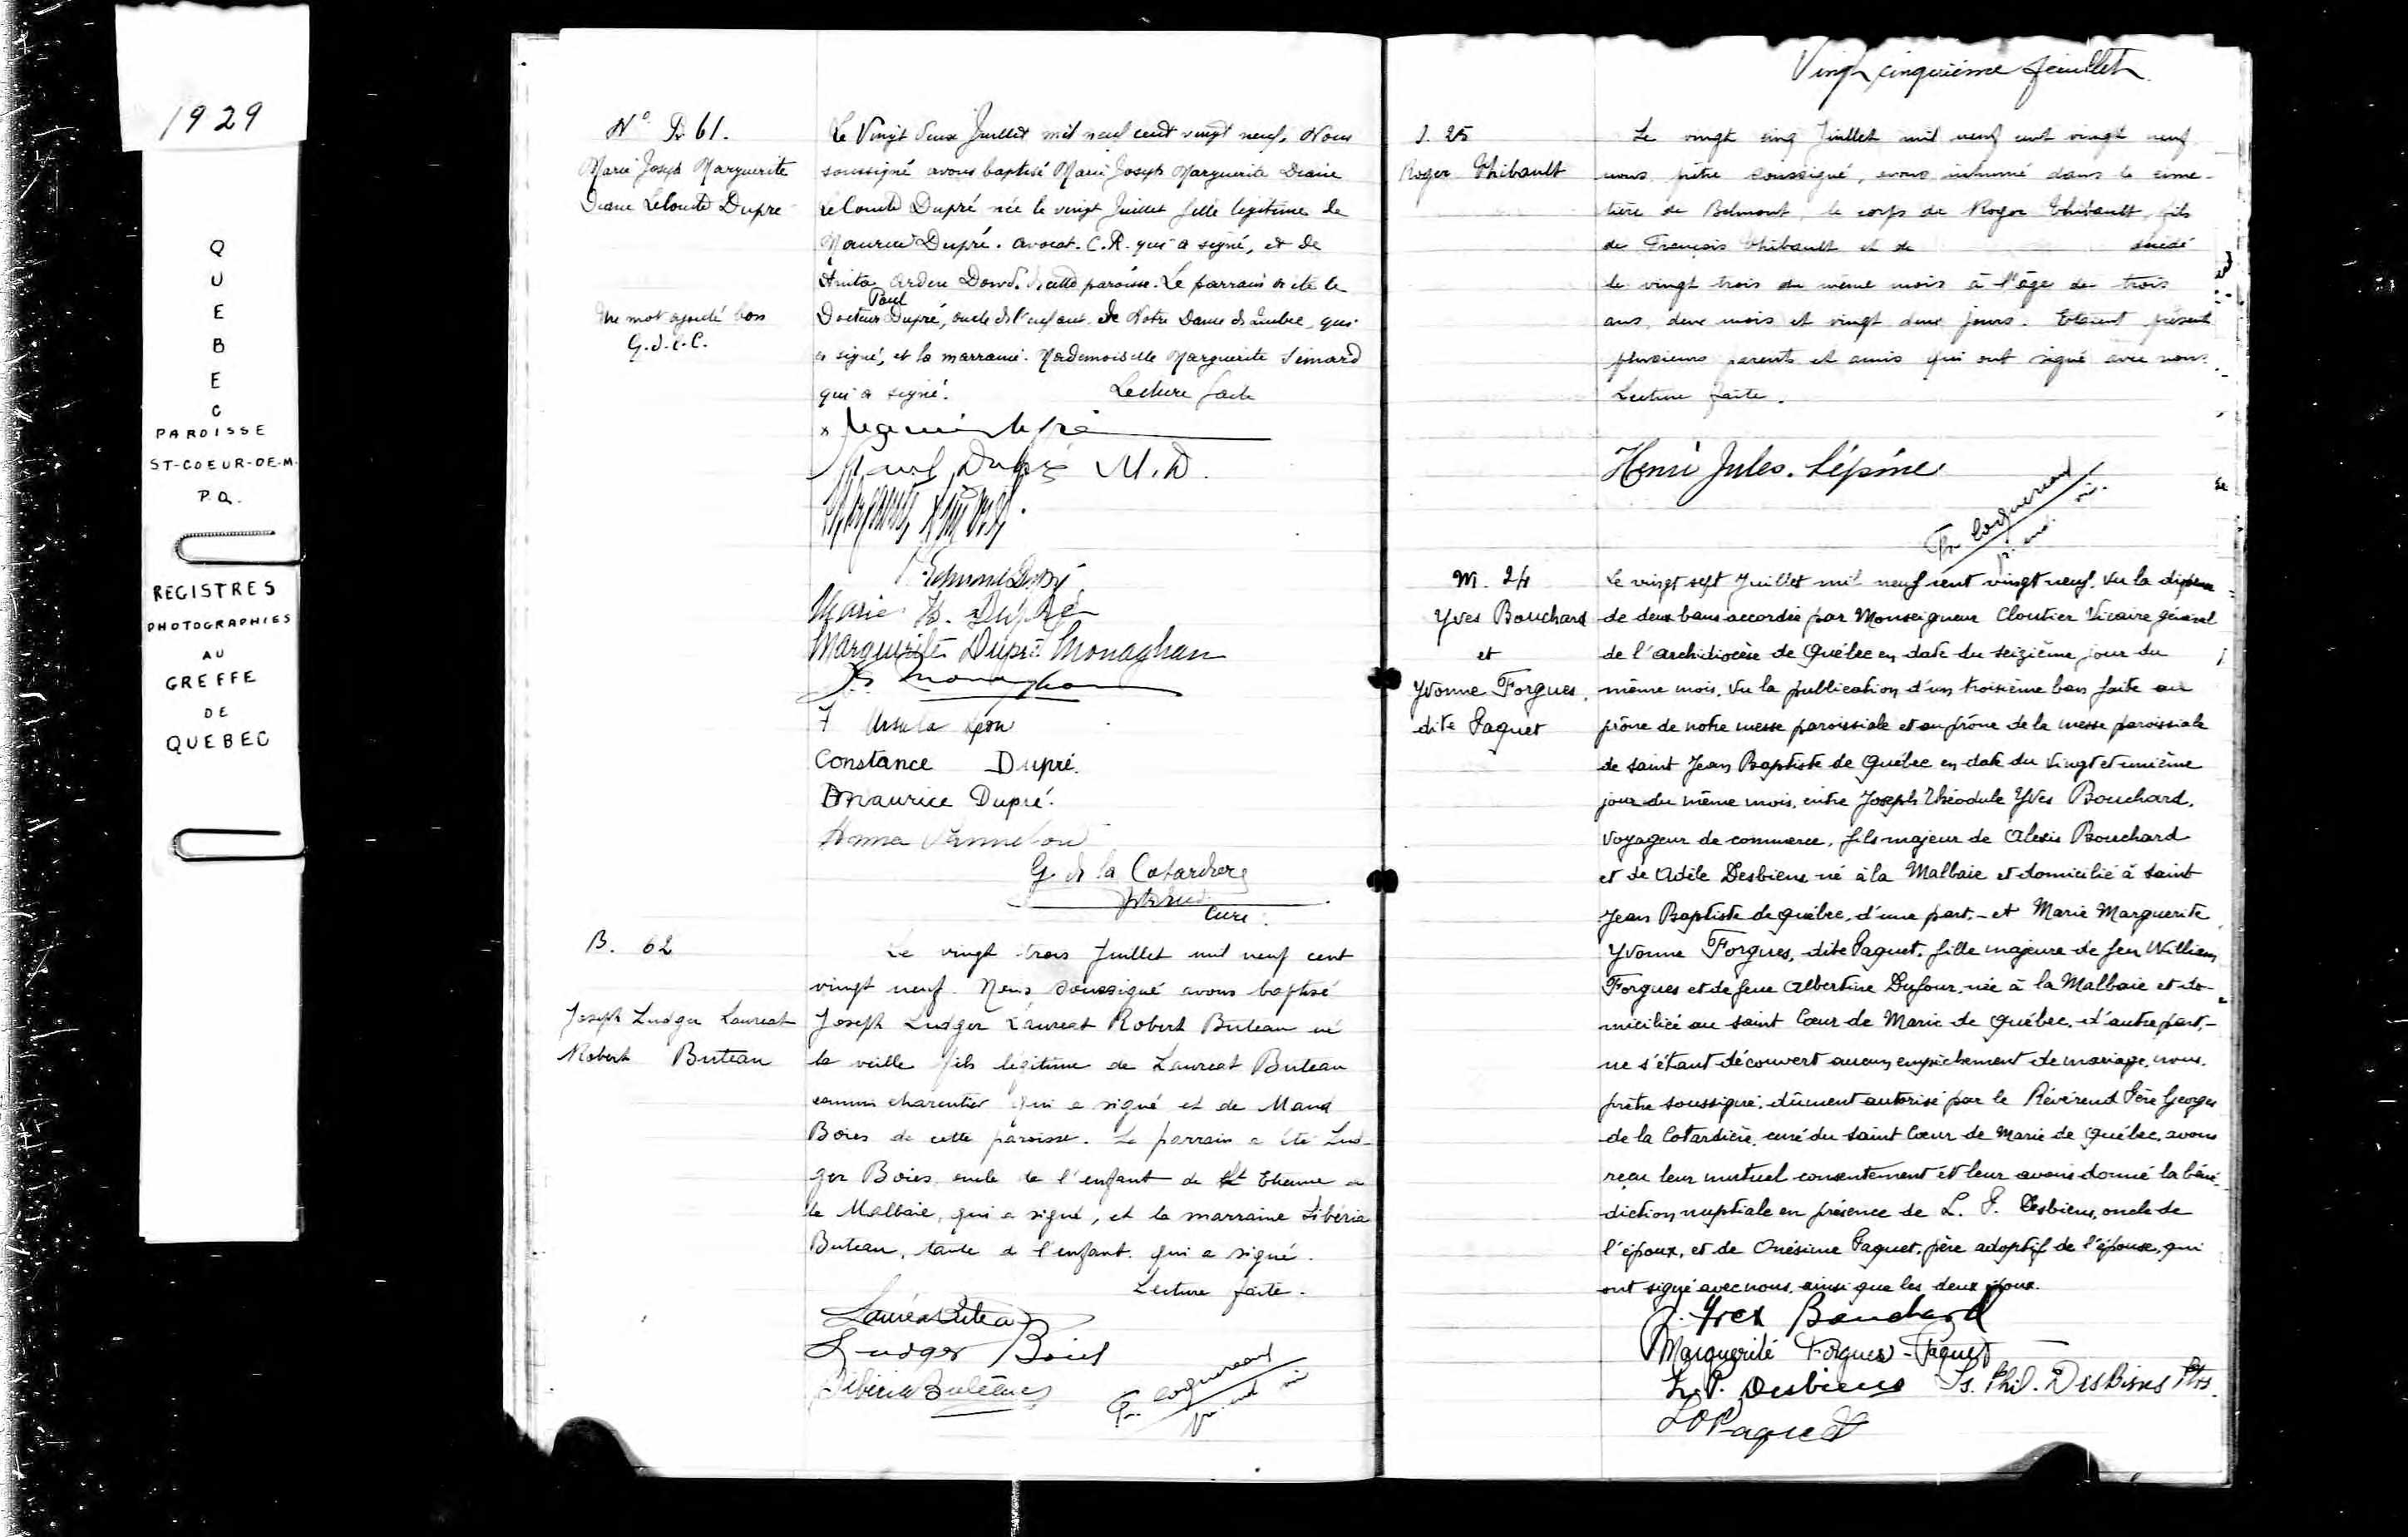 1929
Q
U
E
B
E
C
PAROISSE
ST-COEUR-DE-M.
P.Q.
REGISTRES
PHOTOGRAPHIES
AU
GREFFE
DE
QUEBEC
No B 61.
Marie Joseph Marguerite
Diane LeComte Dupré
Un mot ajouté bon
G.d.l.C.
Le Vingt deux Juillet mil neuf cent vingt neuf, Nous
soussigné avons baptisé Marie Joseph Marguerite Diane
LeComte Dupré née le vingt Juillet fille légitime de
Maurice Dupré. avocat. C.R. qui a signé, et de
Anita Arden Dowd. de cette paroisse. Le parrain a été le
Paul
Docteur Dupré, oncle de l'enfant. de Notre Dame de Québec, qui
a signé, et la marraine. Mademoiselle Marguerite Simard
qui a signé. Lecture faite
Paul Dupré M.D.
Marie B. Dupré
Marguerite Dupré Monaghan
Monaghan
Ursula
Constance Dupré.
Maurice Dupré.
G. de la Cotardière
Curé.
B. 62
Joseph Ludger Lauréat
Robert Buteau
Le vingt trois Juillet mil neuf cent
vingt neuf. Nous soussigné avons baptisé
Joseph Ludger Lauréat Robert Buteau né
la veille fils légitime de Lauréat Buteau
commis charentier qui a signé et de Maud
Boies de cette paroisse. Le parrain a été Lud-
ger Boies oncle de l'enfant de St Etienne de
la Malbaie, qui a signé, et la marraine Libéria
Buteau, tante de l'enfant. qui a signé.
Lecture faite.
Lauréat Buteau
Ludger Boies
Libéria Buteau
Fr. Coquereau
pr. ind. vic.
Vingt cinquième feuillet
S. 25
Roger Thibault
Le vingt cinq Juillet mil neuf cent vingt neuf
nous, prêtre soussigné, avons inhumé dans le cime-
tière de Belmont, le corps de Roger Thibault, fils
de François Thibault et de décédé
le vingt trois du même mois à l'âge de trois
ans, deux mois et vingt deux jours. Etaient présents
plusieurs parents et amis qui ont signé avec nous.
Lecture faite.
Henri Jules. Lépine
Fr. Coquereau
pr. ind. vic.
M. 24
Yves Bouchard
et
Yvonne Forgues
dite Paquet
Le vingt sept Juillet mil neuf cent vingt neuf. Vu la dispense
de deux bans accordée par Monseigneur Cloutier Vicaire général
de l'archidiocèse de Québec en date du seizième jour du
même mois. Vu la publication d'un troisième ban faite au
prône de notre messe paroissiale et au prône de la messe paroissiale
de saint Jean Baptiste de Québec en date du Vingt et unième
jour du même mois, entre Joseph Théodule Yves Bouchard,
voyageur de commerce, fils majeur de Alexis Bouchard
et de Adèle Desbiens né à la Malbaie et domicilié à saint
Jean Baptiste de Québec, d'une part, - et Marie Marguerite
Yvonne Forgues, dite Paquet, fille majeure de feu William
Forgues et de feue Albertine Dufour, née à la Malbaie et do-
miciliée au saint Cœur de Marie de Québec, d'autre part,-
ne s'étant découvert aucun empêchement de mariage, nous,
prêtre soussigné, dûment autorisé par le Révérend Père Georges
de la Cotardière, curé du saint Cœur de Marie de Québec, avons
reçu leur mutuel consentement et leur avons donné la béné-
diction nuptiale en présence de L. P. Desbiens, oncle de
l'époux, et de Onésime Paquet, père adoptif de l'épouse, qui
ont signé avec nous, ainsi que les deux époux.
J. Yves Bouchard
Marguerite Forgues-Paquet
L.P. Desbiens Ls. Phil. DesBiens Ptre.
L O Paquet